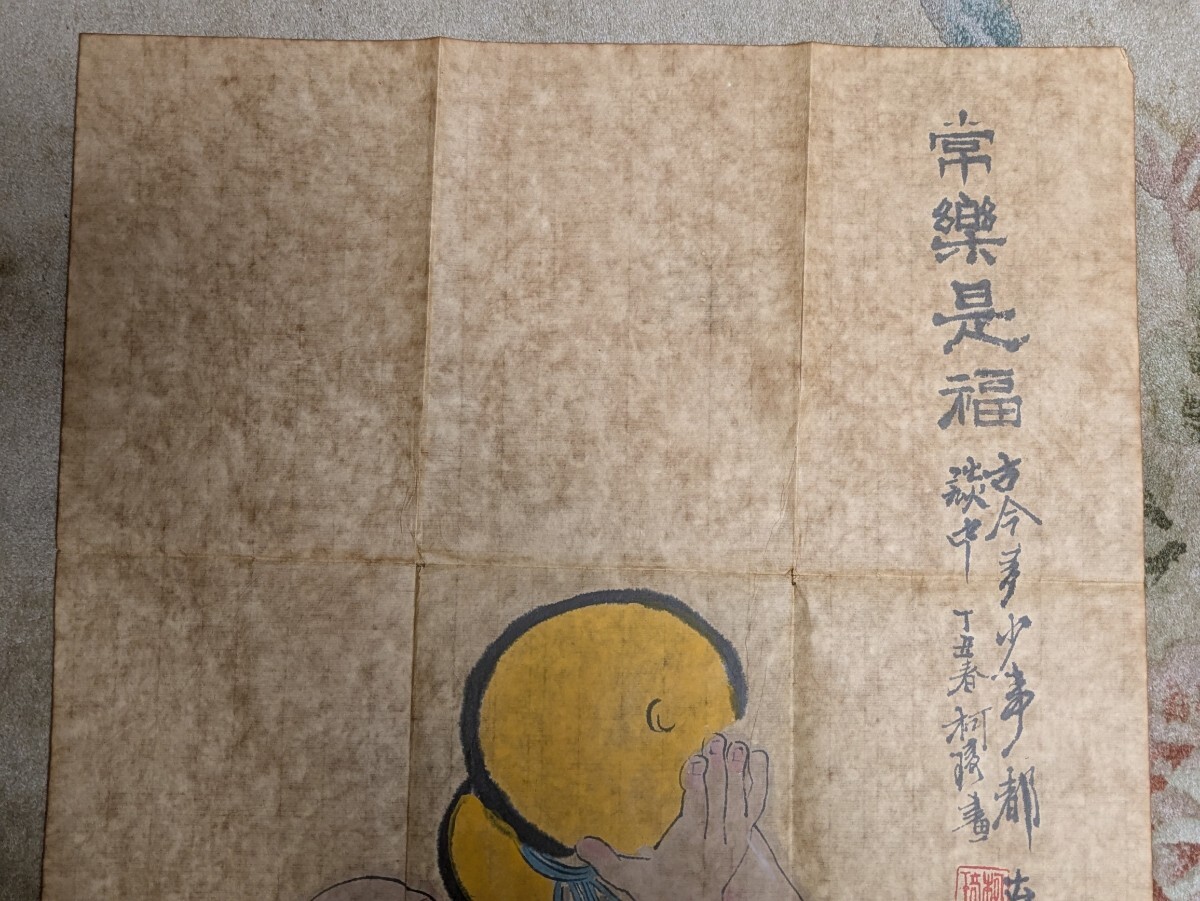 常樂是福
古今多少事都
談中 丁丑春 柯 畫
柯